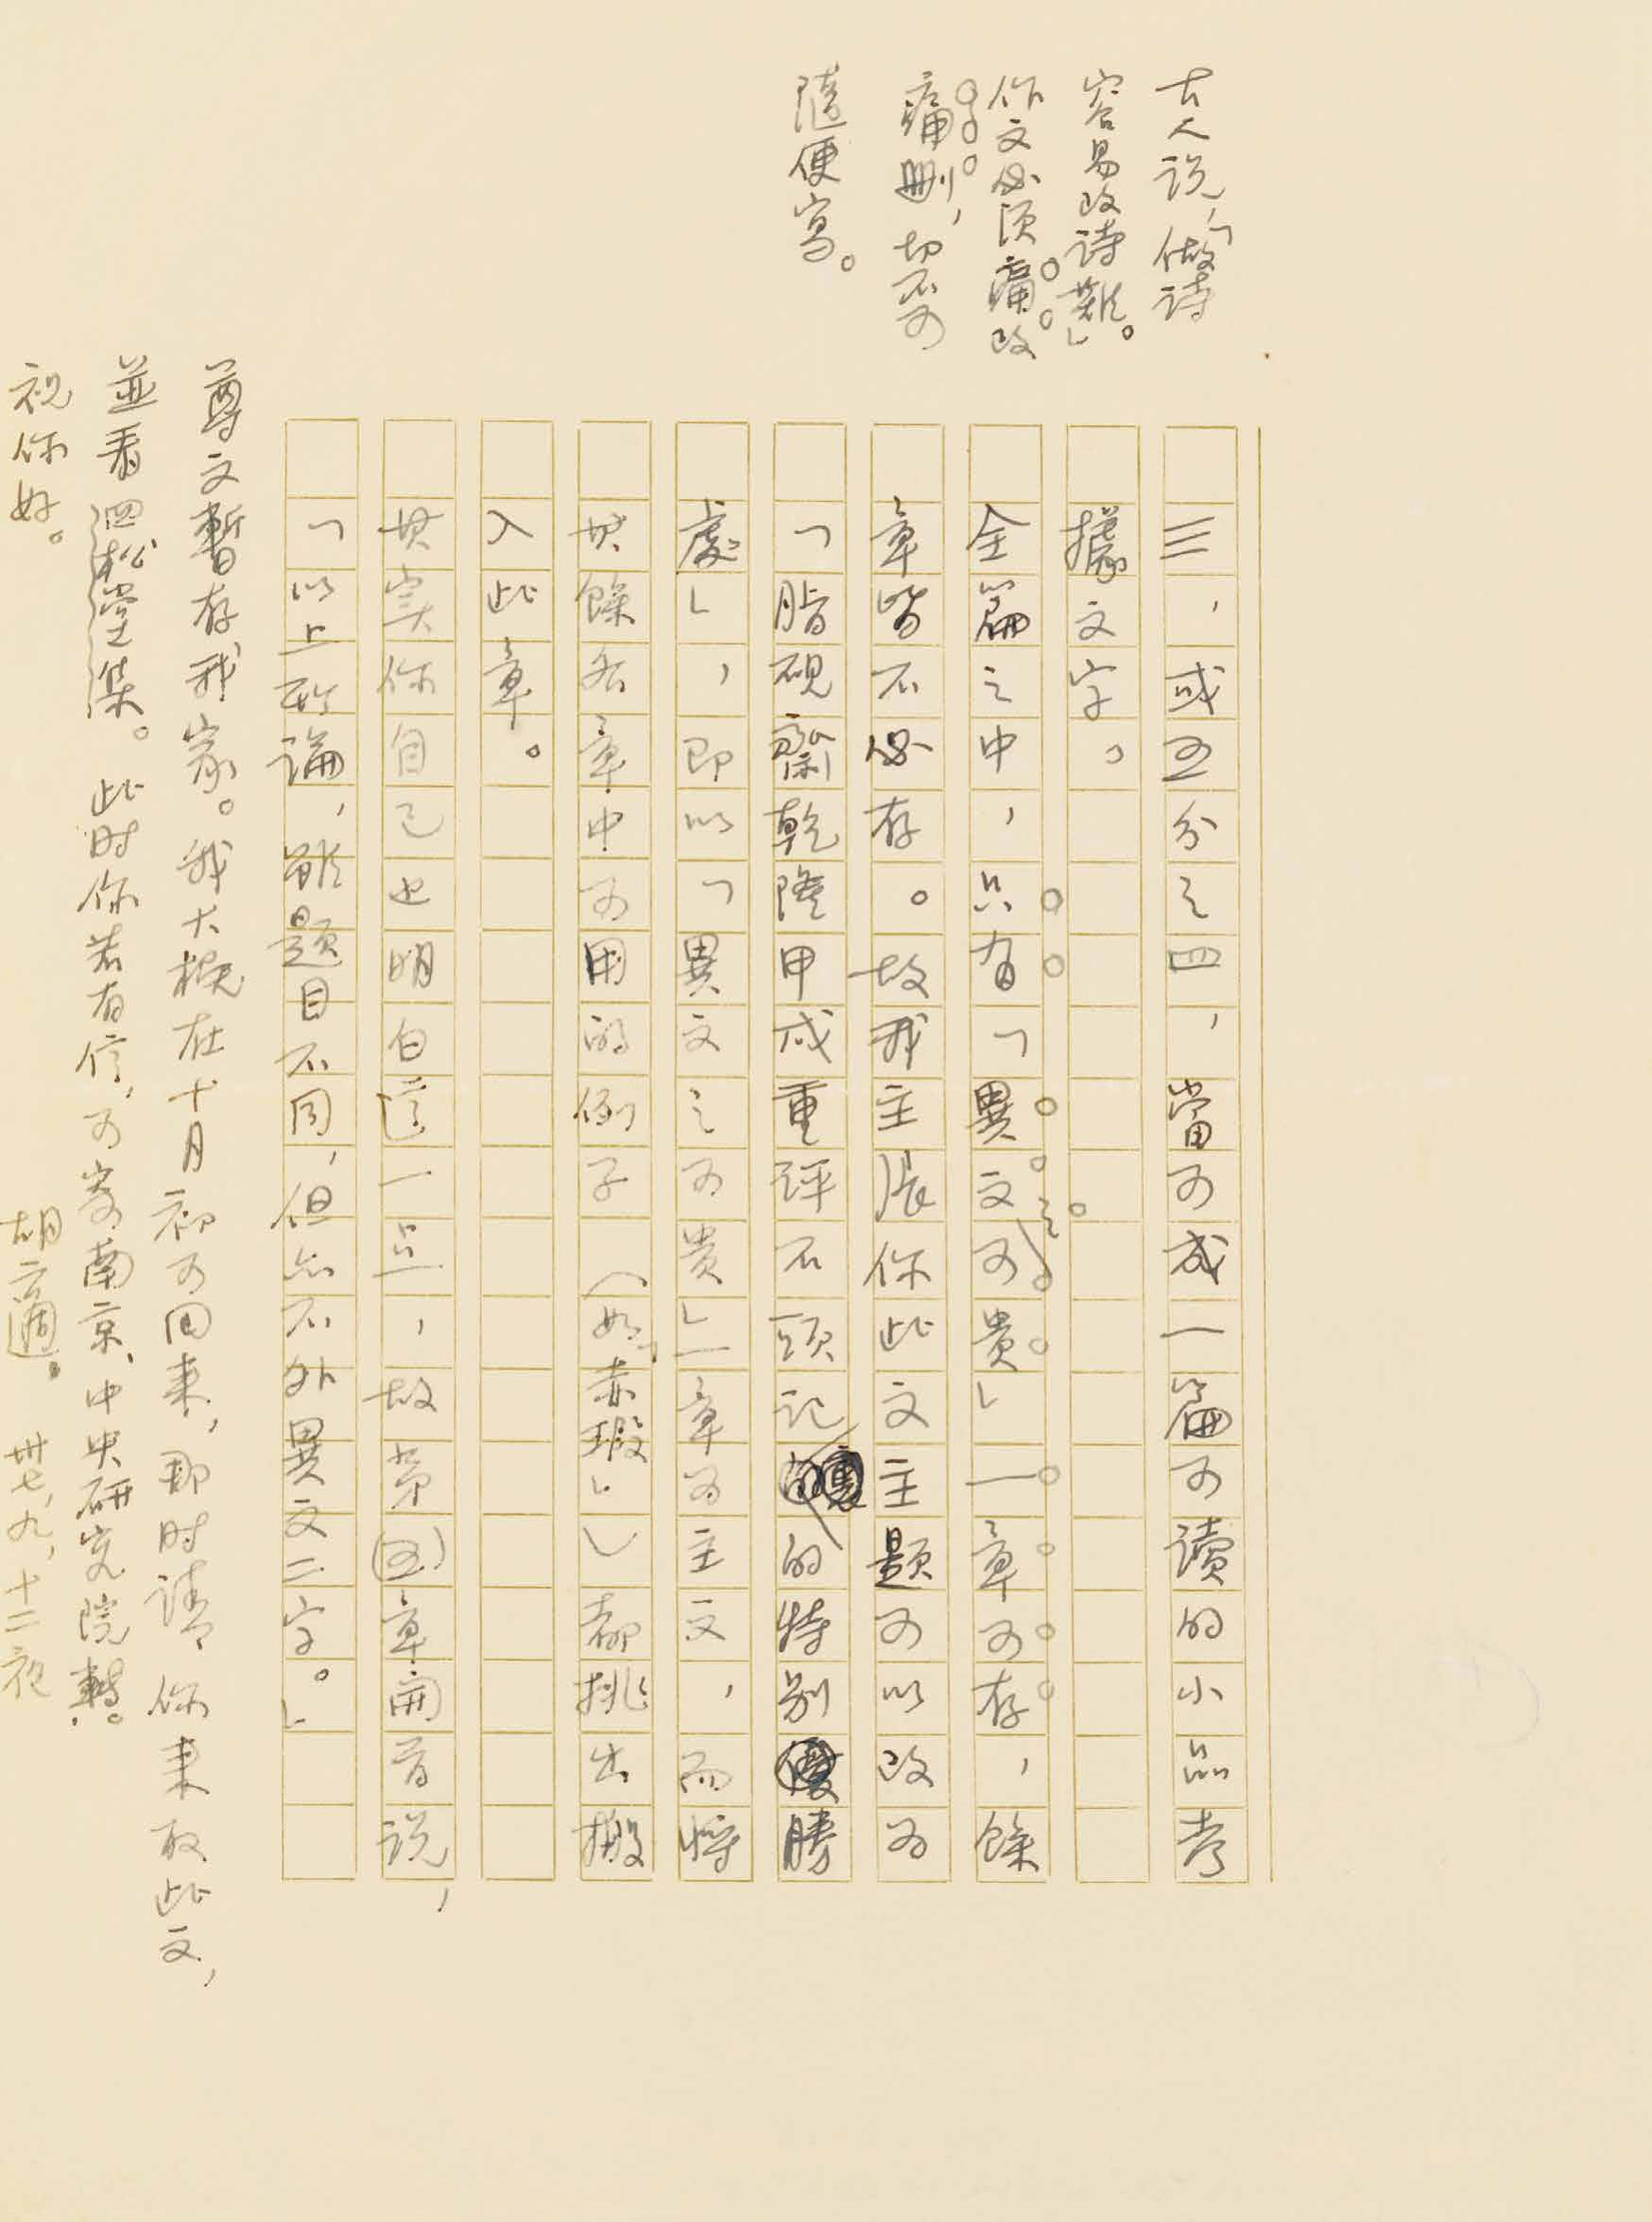 古人说,「做诗
容易改诗難」。
作文必须痛改
痛删,切不可
隨便寫。
三,或五分之四,當可成一篇可讀的小品考
據文字。
全篇之中,只有「異文之可貴」一章可存,餘
章皆不必存。故我主張你此文主題可以改為
「脂硯齋乾隆甲戌重評石頭記的特别優勝
處」,即以「異文之可貴」一章为主文,而將
其餘各章中可用的例子(如「赤瑕」)都挑出搬
入此章。
其实你自己也明白這一点,故第(五)章開首说,
「以上所論,雖題目不同,但亦不外異文二字。」
尊文暫存我家。我大概在十月初可回来,那时請你来取此文,
並看四松堂集。此时你若有信,可寄南京、中央研究院轉。
祝你好。
胡適。 卅七,九,十二夜